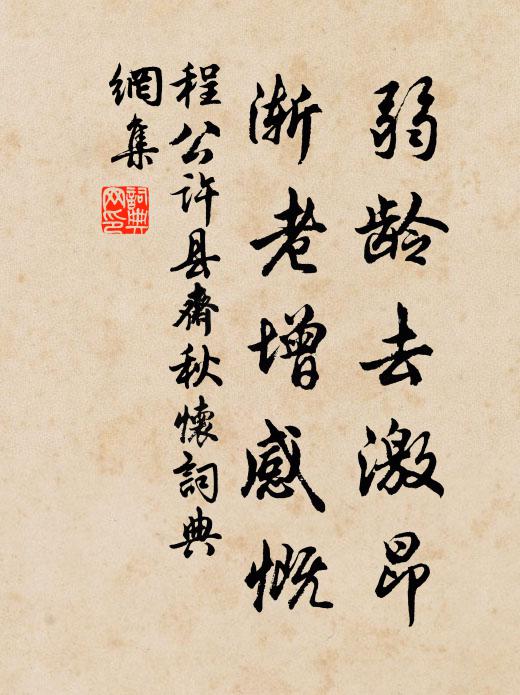 弱龄去激昂
渐老增感慨
程公许县齋秋懷詞典
網集
詞典
网印